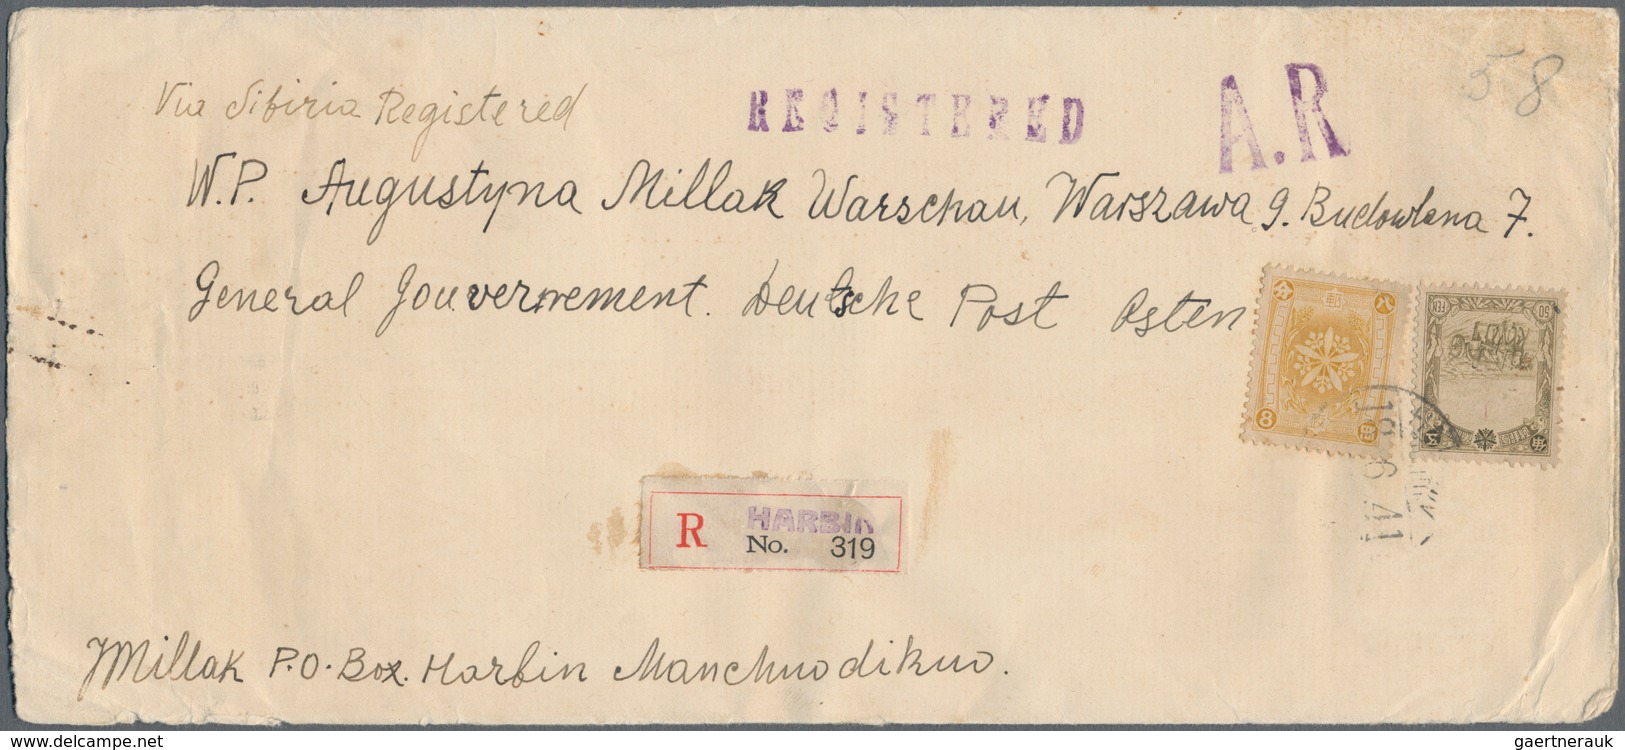 58
Via Sibiria Registered
REGISTERED
A.R
W.P. Augustyna Millak Warschau, Warszawa 9. Budowlana 7.
General Gouvernement. Deutsche Post Osten
分 郵 八
8
50 FEN
18 6 41
R HARBIN
No. 319
JMillak P.O. Box. Harbin Manchuodikuo.
www.delcampe.net
gaertnerauk